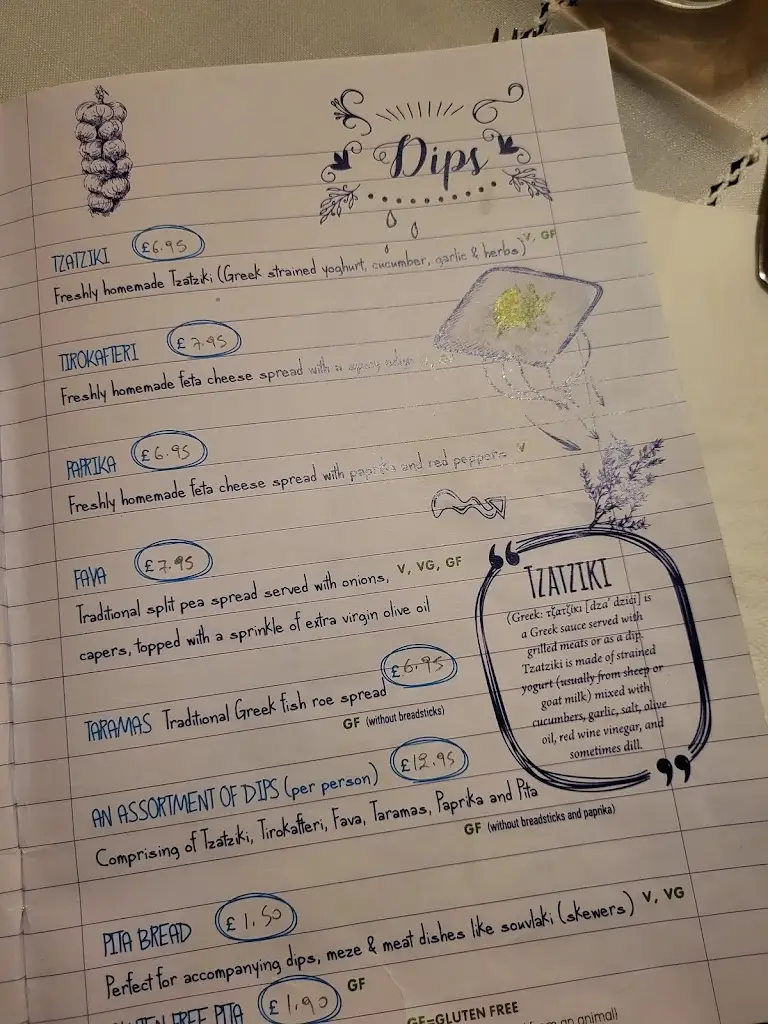 Dips
TZATZIKI £6.95
Freshly homemade Tzatziki (Greek strained yoghurt, cucumber, garlic & herbs) V, GF
TIROKAFTERI £7.95
Freshly homemade feta cheese spread with a
PAPRIKA £6.95
Freshly homemade feta cheese spread with paprika and red peppers V
FAVA £7.95
Traditional split pea spread served with onions, V, VG, GF
capers, topped with a sprinkle of extra virgin olive oil
£6.95
TARAMAS Traditional Greek fish roe spread
GF (without breadsticks)
AN ASSORTMENT OF DIPS (per person) £12.95
Comprising of Tzatziki, Tirokafteri, Fava, Taramas, Paprika and Pita
GF (without breadsticks and paprika)
PITA BREAD £1.50
Perfect for accompanying dips, meze & meat dishes like souvlaki (skewers) V, VG
GLUTEN FREE PITA £1.90 GF
GF=GLUTEN FREE
from an animal)
“
TZATZIKI
(Greek: τζατζίκι [dzaˈdzici]) is
a Greek sauce served with
grilled meats or as a dip.
Tzatziki is made of strained
yogurt (usually from sheep or
goat milk) mixed with
cucumbers, garlic, salt, olive
oil, red wine vinegar, and
sometimes dill.
”